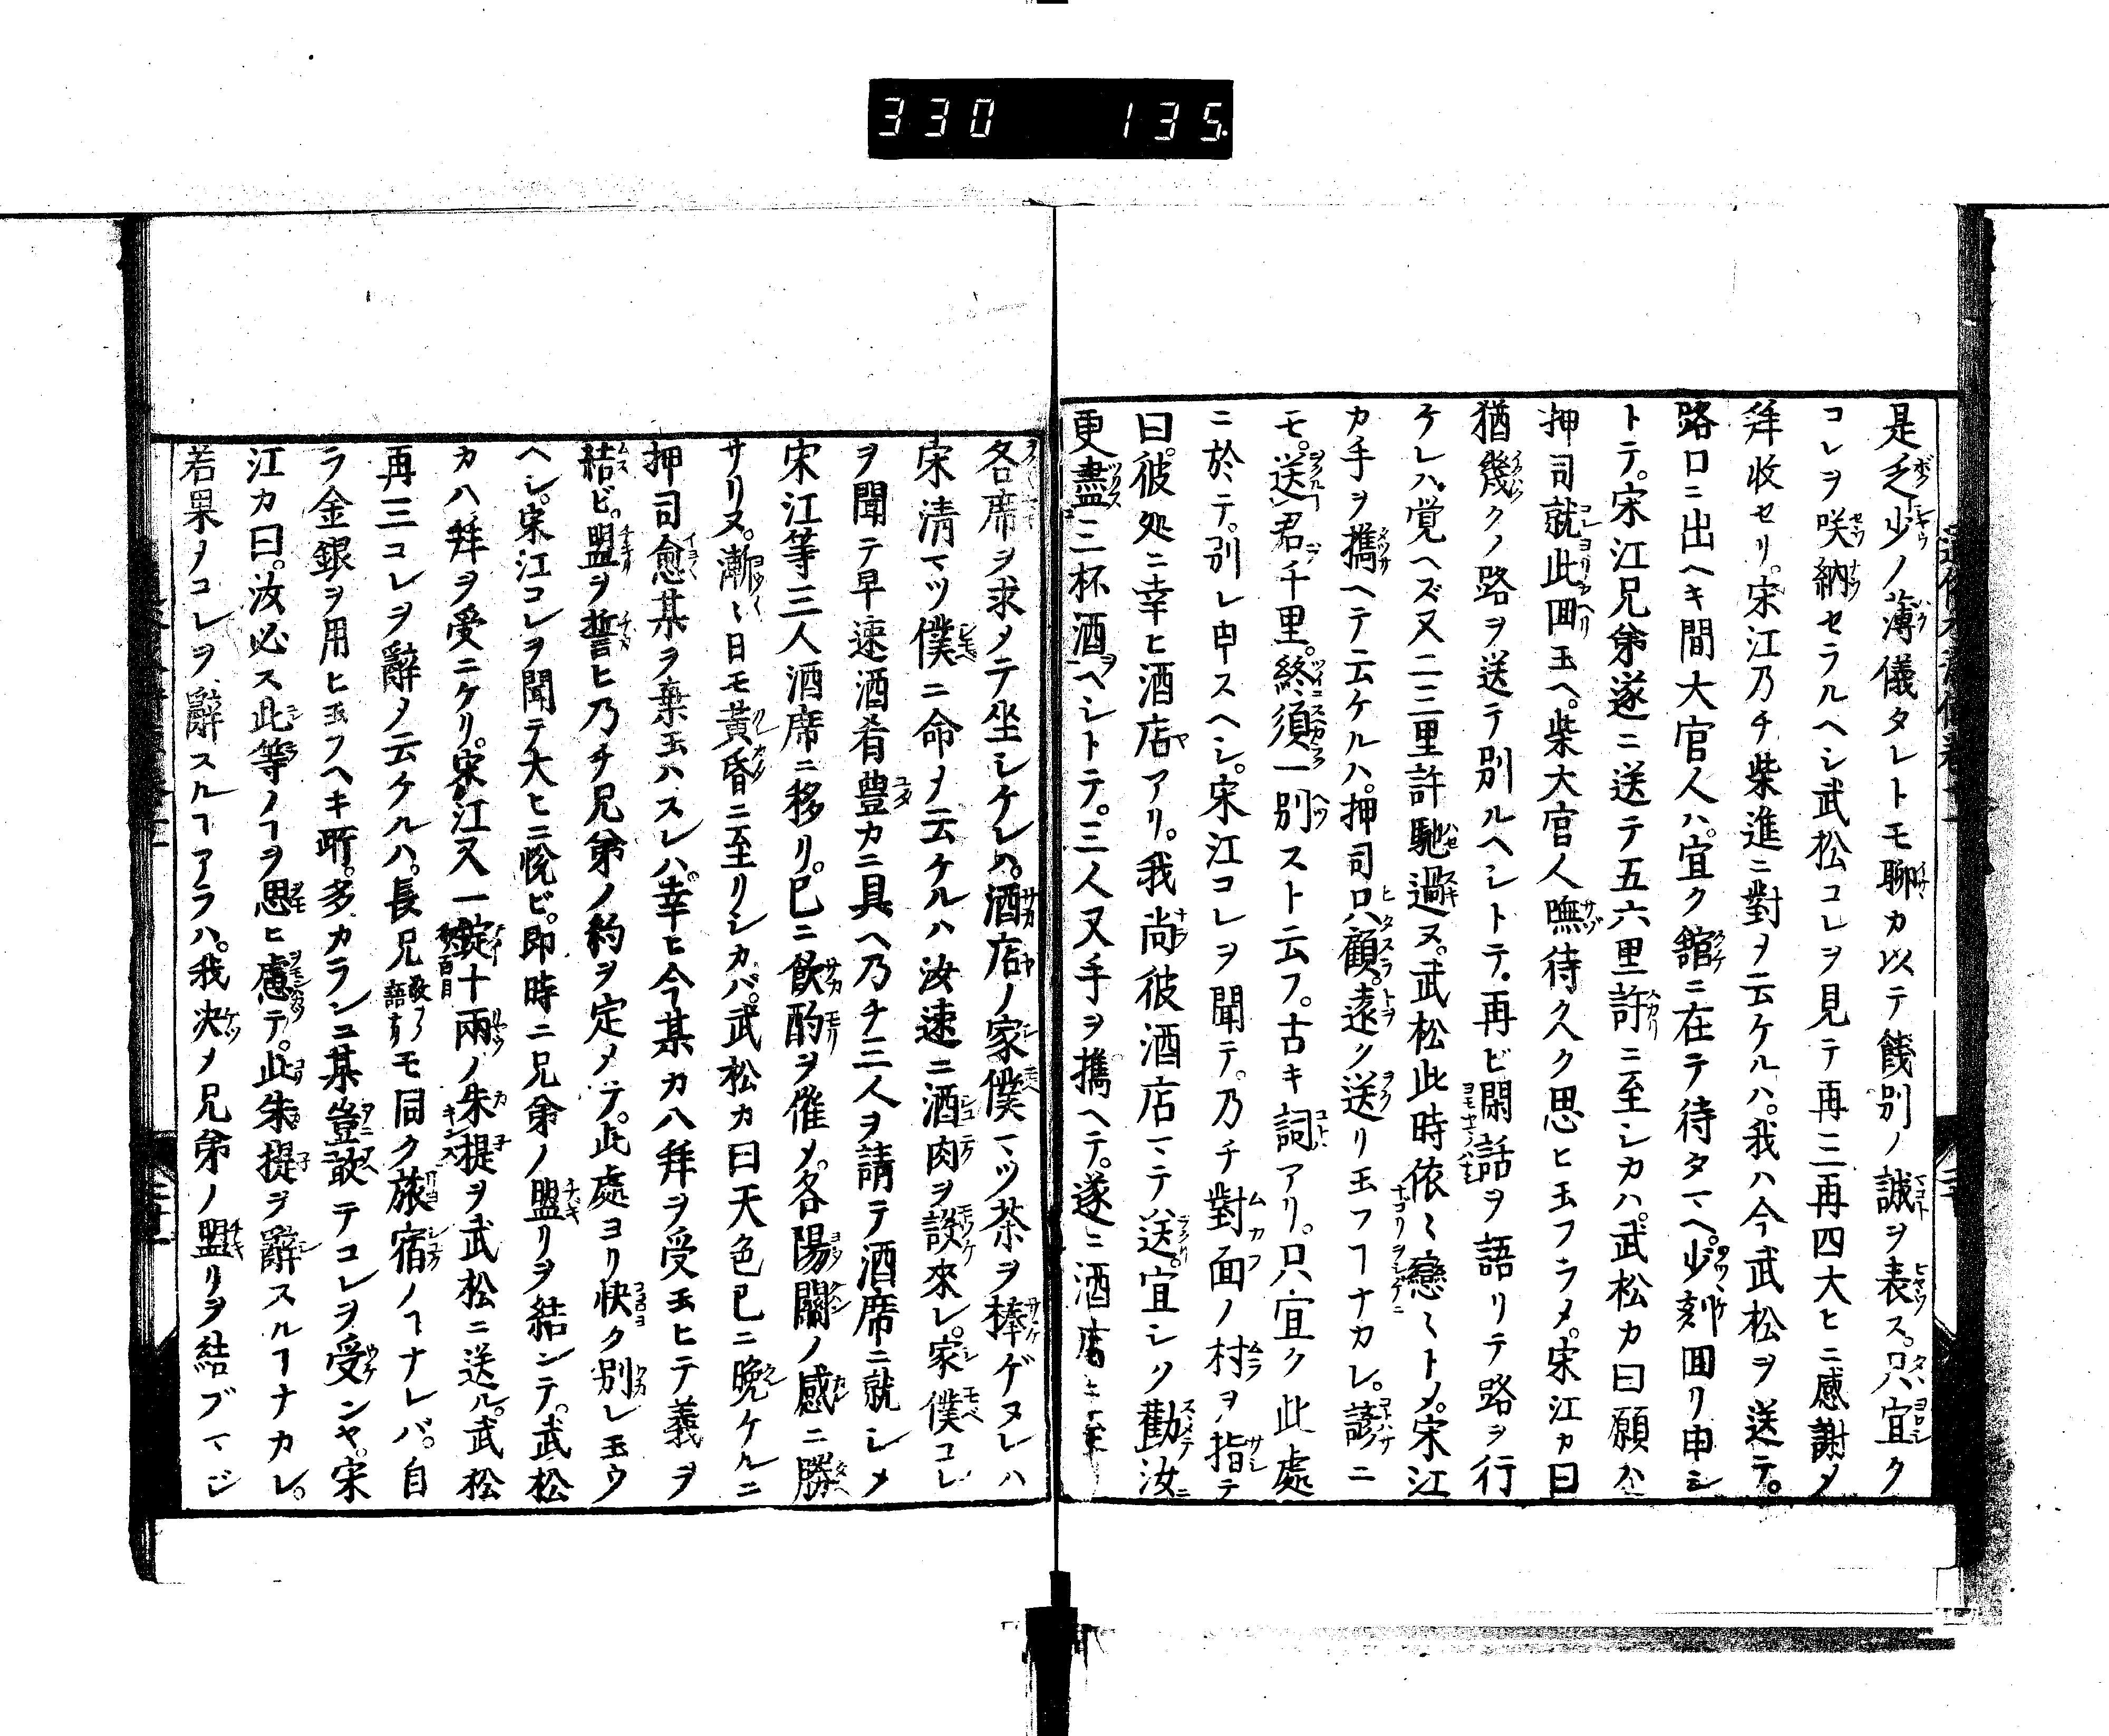 330 135
是乏少ノ薄儀タレトモ聊カ以テ餞別ノ誠ヲ表ス。只宜ク
コレヲ咲納セラルヘシ武松コレヲ見テ再三再四大ヒニ感謝メ
拜收セリ。宋江乃チ柴進ニ對ヲ云ケルハ。我ハ今武松ヲ送テ。
路口ニ出ヘキ間大官人ハ。宜ク舘ニ在テ待タマヘ。少刻囬リ申シ
トテ。宋江兄弟遂ニ送テ五六里許ニ至シカハ。武松カ曰願公
押司就此囬玉ヘ。柴大官人嘸待久ク思ヒ玉フラメ。宋江カ曰
猶幾クノ路ヲ送テ別ルヘシトテ。再ビ閑話ヲ語リテ路ヲ行
ケレハ。覚ヘズ又二三里許馳過ヌ。武松此時依〻戀〻トメ。宋江
カ手ヲ攜ヘテ云ケルハ。押司只顧。遠ク送リ玉フヿナカレ。諺ニ
モ。送君千里。終須一別スト云フ。古キ詞アリ。只宜ク此處
ニ於テ。別レ申スヘシ。宋江コレヲ聞テ。乃チ對面ノ村ヲ指テ
曰。彼処ニ幸ヒ酒店アリ。我尚彼酒店マテ送。宜シク勸汝
更盡三杯酒ヘシトテ。三人又手ヲ攜ヘテ。遂ニ酒店ニ
各席ヲ求メテ坐シケレハ。酒店ノ家僕マツ茶ヲ捧ゲヌレハ
宋清マツ僕ニ命メ云ケルハ汝速ニ酒肉ヲ設來レ。家僕コレ
ヲ聞テ早速酒肴豊カニ具ヘ乃チ三人ヲ請テ酒席ニ就シメ
宋江等三人酒席ニ移リ。已ニ飲酌ヲ催メ。各陽關ノ感ニ勝
サリヌ。漸〻日モ黄昏ニ至リシカバ。武松カ曰天色已ニ晩ケルニ
押司愈某ヲ棄玉ハスレハ。幸ヒ今某カ八拜ヲ受玉ヒテ義ヲ
結ビ。盟ヲ誓ヒ乃チ兄弟ノ約ヲ定メテ。此處ヨリ快ク別レ玉ウ
ヘシ。宋江コレヲ聞テ大ヒニ悅ビ。即時ニ兄弟ノ盟リヲ結ンテ。武松
カ八拜ヲ受ニケリ。宋江又一錠十兩ノ朱提ヲ武松ニ送ル。武松
再三コレヲ辭メ云ケルハ。長兄モ同ク旅宿ノヿナレバ。自
ラ金銀ヲ用ヒ玉フヘキ所。多カランニ某豈敢テコレヲ受ンヤ。宋
江カ曰。汝必ス此等ノヿヲ思ヒ慮テ。此朱提ヲ辭スルヿナカレ。
若果メコレヲ辭スルヿアラハ。我决メ兄弟ノ盟リヲ結ブマジ